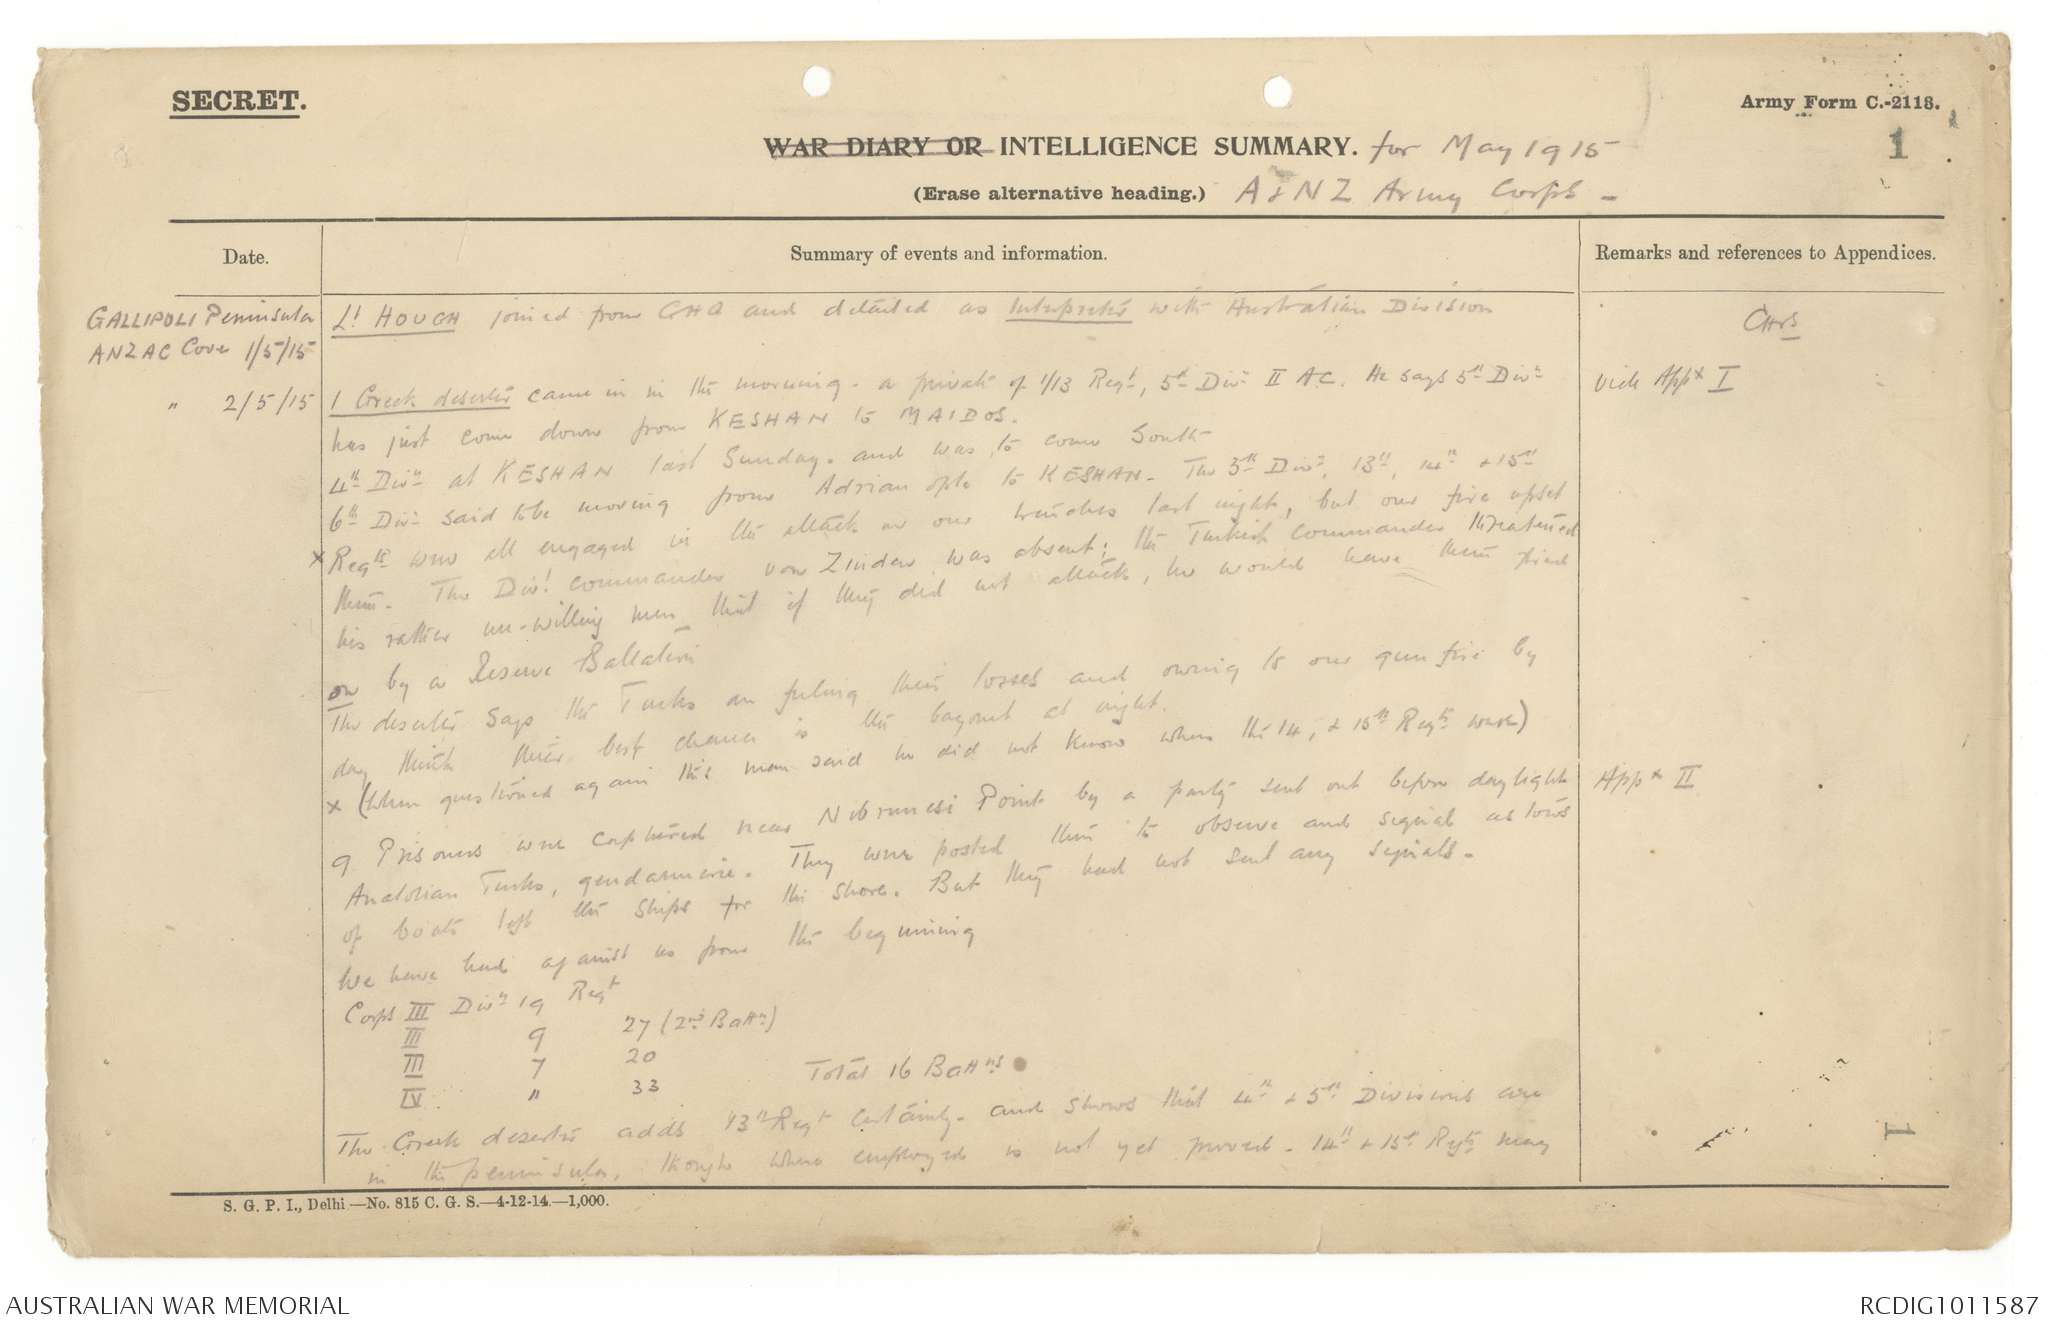 SECRET.
Army Form C.-2118.
1
WAR DIARY OR INTELLIGENCE SUMMARY. for May 1915
(Erase alternative heading.) A & N Z Army Corps -
Date.
Summary of events and information.
Remarks and references to Appendices.
GALLIPOLI Peninsula
ANZAC Cove 1/5/15
Lt HOUGH joined from GHQ and detailed as Interpreter with Australian Division
" 2/5/15
1 Greek deserter came in in the morning - a private of 1/13 Regt, 5th Divn II A.C. He says 5th Divn
vide Appx I
has just come down from KESHAN to MAIDOS.
4th Divn at KESHAN last Sunday - and was to come South
6th Divn said to be moving from Adrianople to KESHAN - The 5th Divn, 13th, 14th & 15th
x Regts were all engaged in the attack on our trenches last night, but our fire upset
them - The Divl commander von Zinden was absent; the Turkish commander threatened
his rather un-willing men that if they did not attack, he would have them fired
on by a Reserve Battalion
The deserter says the Turks are feeling their losses and owing to our gun fire by
day think their best chance is the bayonet at night.
x (When questioned again this man said he did not know where the 14, & 15th Regts were)
9 Prisoners were captured near Nibrunesi Point by a party sent out before daylight
Appx II
Anatolian Turks, gendarmerie. They were posted there to observe and signal as tows
of boats left the ships for the shore. But they had not sent any signals -
We have had against us from the beginning
Corps III Divn 19 Regt
III 9 27 (2nd Battn)
III 7 20
IV " 33
Total 16 Battns
The Greek deserter adds 13th Regt certainly - and shows that 4th & 5th Divisions are
in the peninsula, though where employed is not yet proved - 14th & 15th Regts may
1
S. G. P. I., Delhi—No. 815 C. G. S.—4-12-14.—1,000.
AUSTRALIAN WAR MEMORIAL
RCDIG1011587